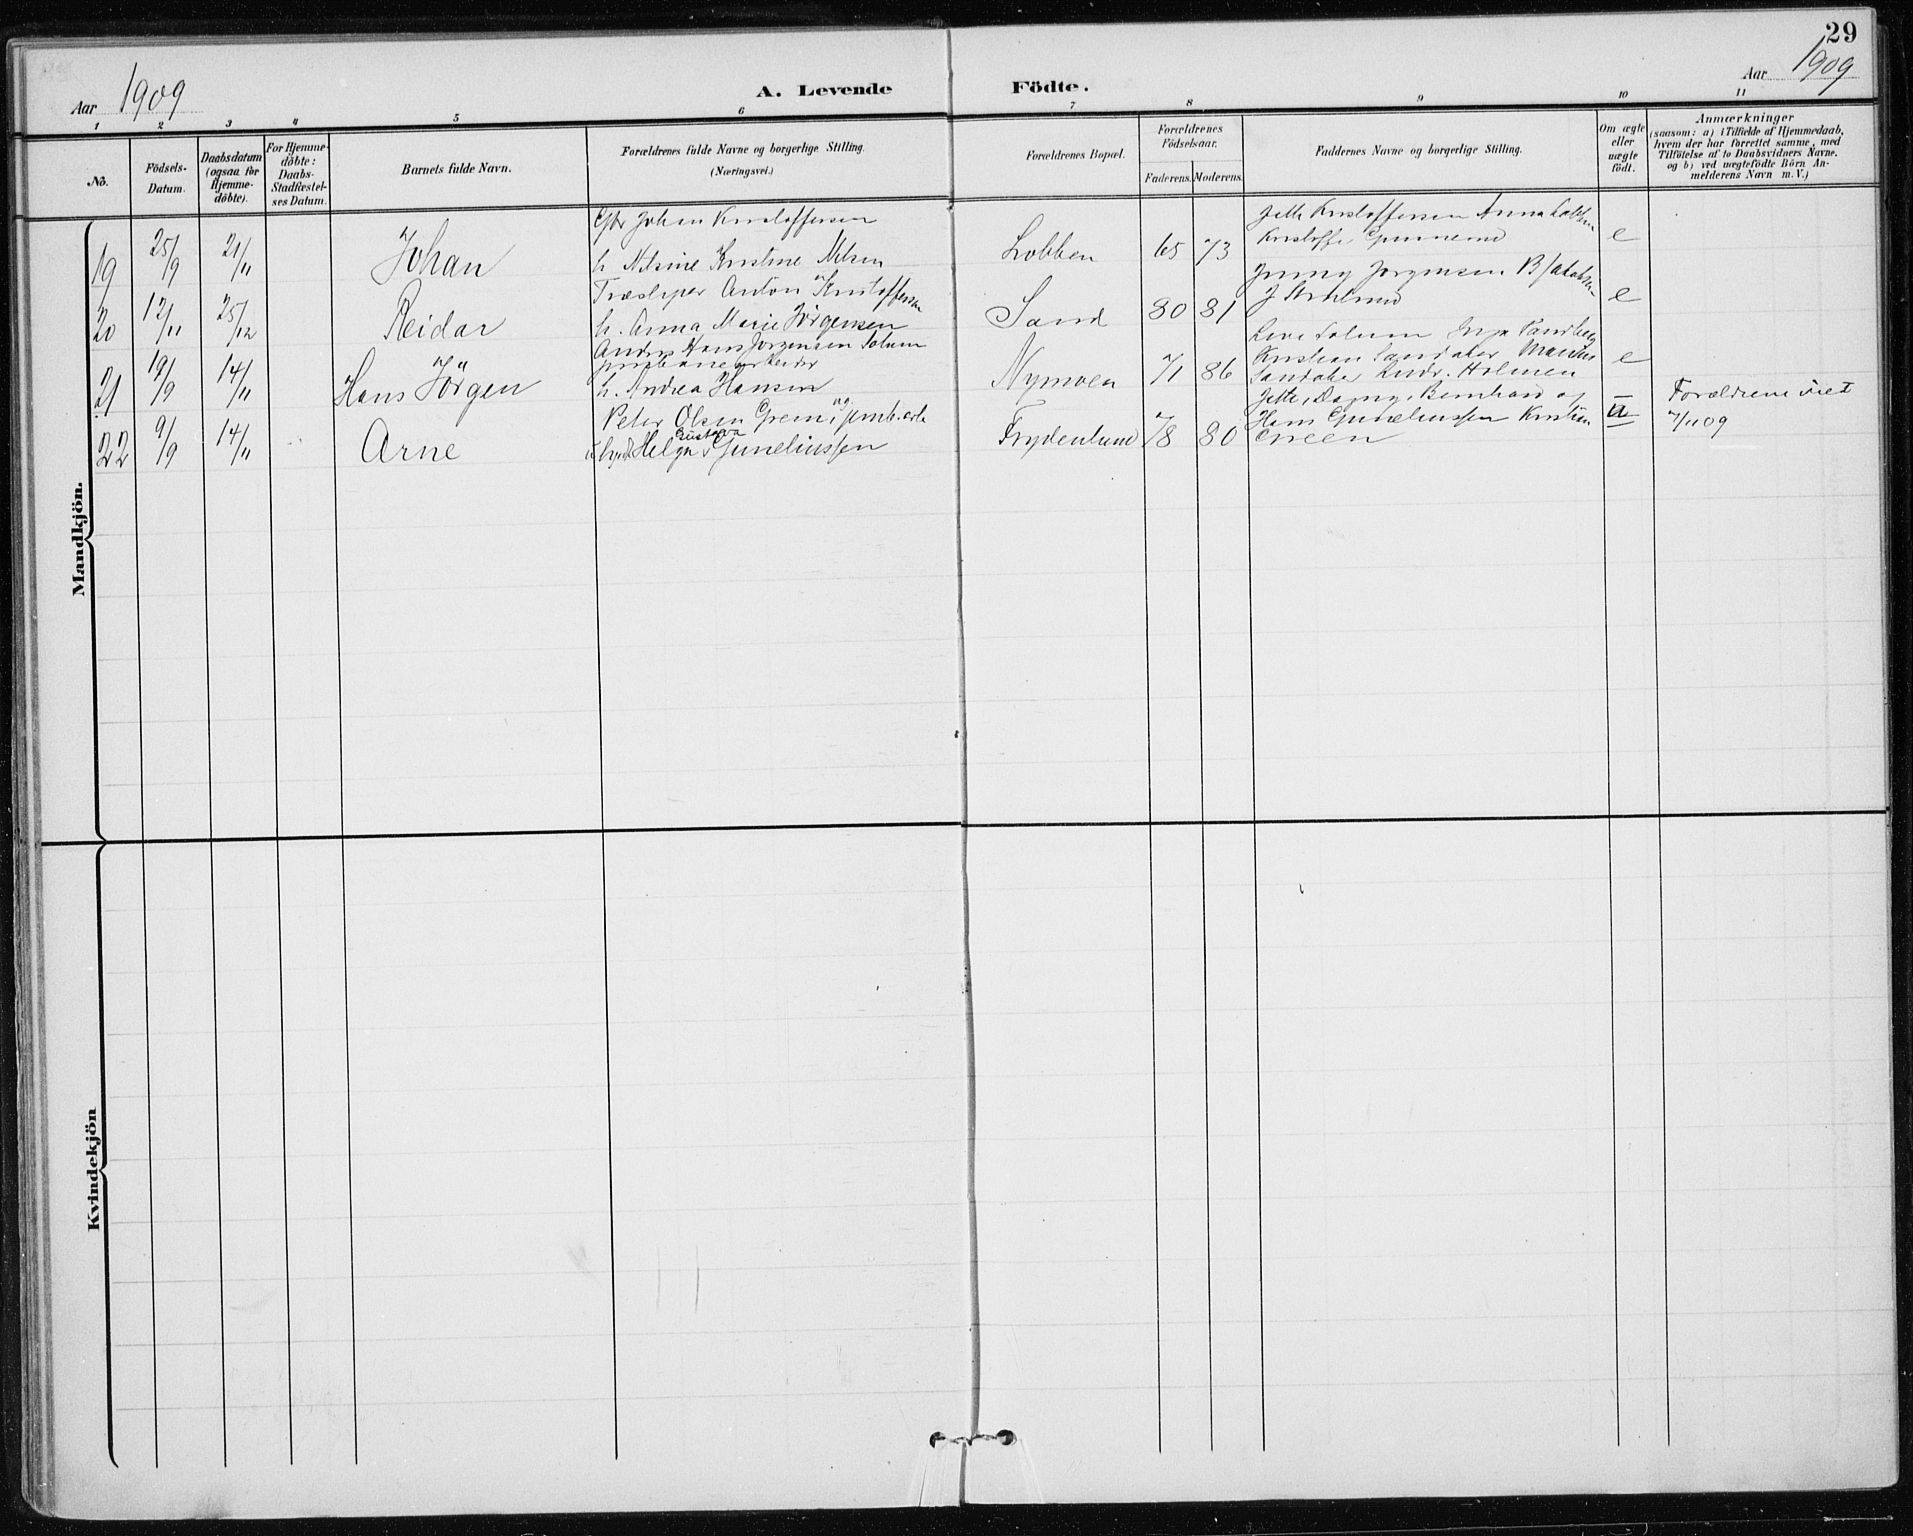 29
Aar 1909
A. Levende Födte.
Aar 1909
1 2 3 4 5 6 7 8 9 10 11
No.
Födsels-
Datum.
Daabsdatum
(ogsaa for
Hjemme-
döbte).
For Hjemme-
döbte:
Daabs-
Stadfæstel-
ses Datum.
Barnets fulde Navn.
Forældrenes fulde Navne og borgerlige Stilling.
(Næringsvei.)
Forældrenes Bopæl.
Forældrenes
Födselsaar.
Faderens. Moderens.
Faddernes Navne og borgerlige Stilling.
Om ægte
eller
uægte
födt.
Anmærkninger
(saasom: a) i Tilfælde af Hjemmedaab,
hvem der har forrettet samme, med
Tilföielse af to Daabsvidners Navne.
og b) ved uægtefödte Börn An-
melderens Navn m. V.)
Mandkjön.
19 25/9 21/11 Johan
Johan Kristoffersen
h. Nilsine Kristine Nilsen
Lobben 65 73
Jette Kristoffersen Anna
Kristoffer
e
20 12/11 25/12 Reidar
Træsliper Anton Kristoffersen
h. Anna Marie Jörgensen
Sand 80 81
Jenny Jorgensen
e
21 19/9 14/11 Hans Jörgen
Anders Hans Jorgensen Solum
jernbanearbeider
h. Andrea Hansen
Nymoen 71 86
Solum Inga
Kristian Sandaker
Sandaker Andr. Holmen
e
22 9/9 14/11 Arne
Peter Olsen Green jernb.arb
og
Gustava
Helga Guneliussen
Frydenlund 78 80
Jette, Dagny, Bernhard og
Hans Guneliussen Kristian
Green
u
Forældrene viet
7/11 09
Kvindekjön